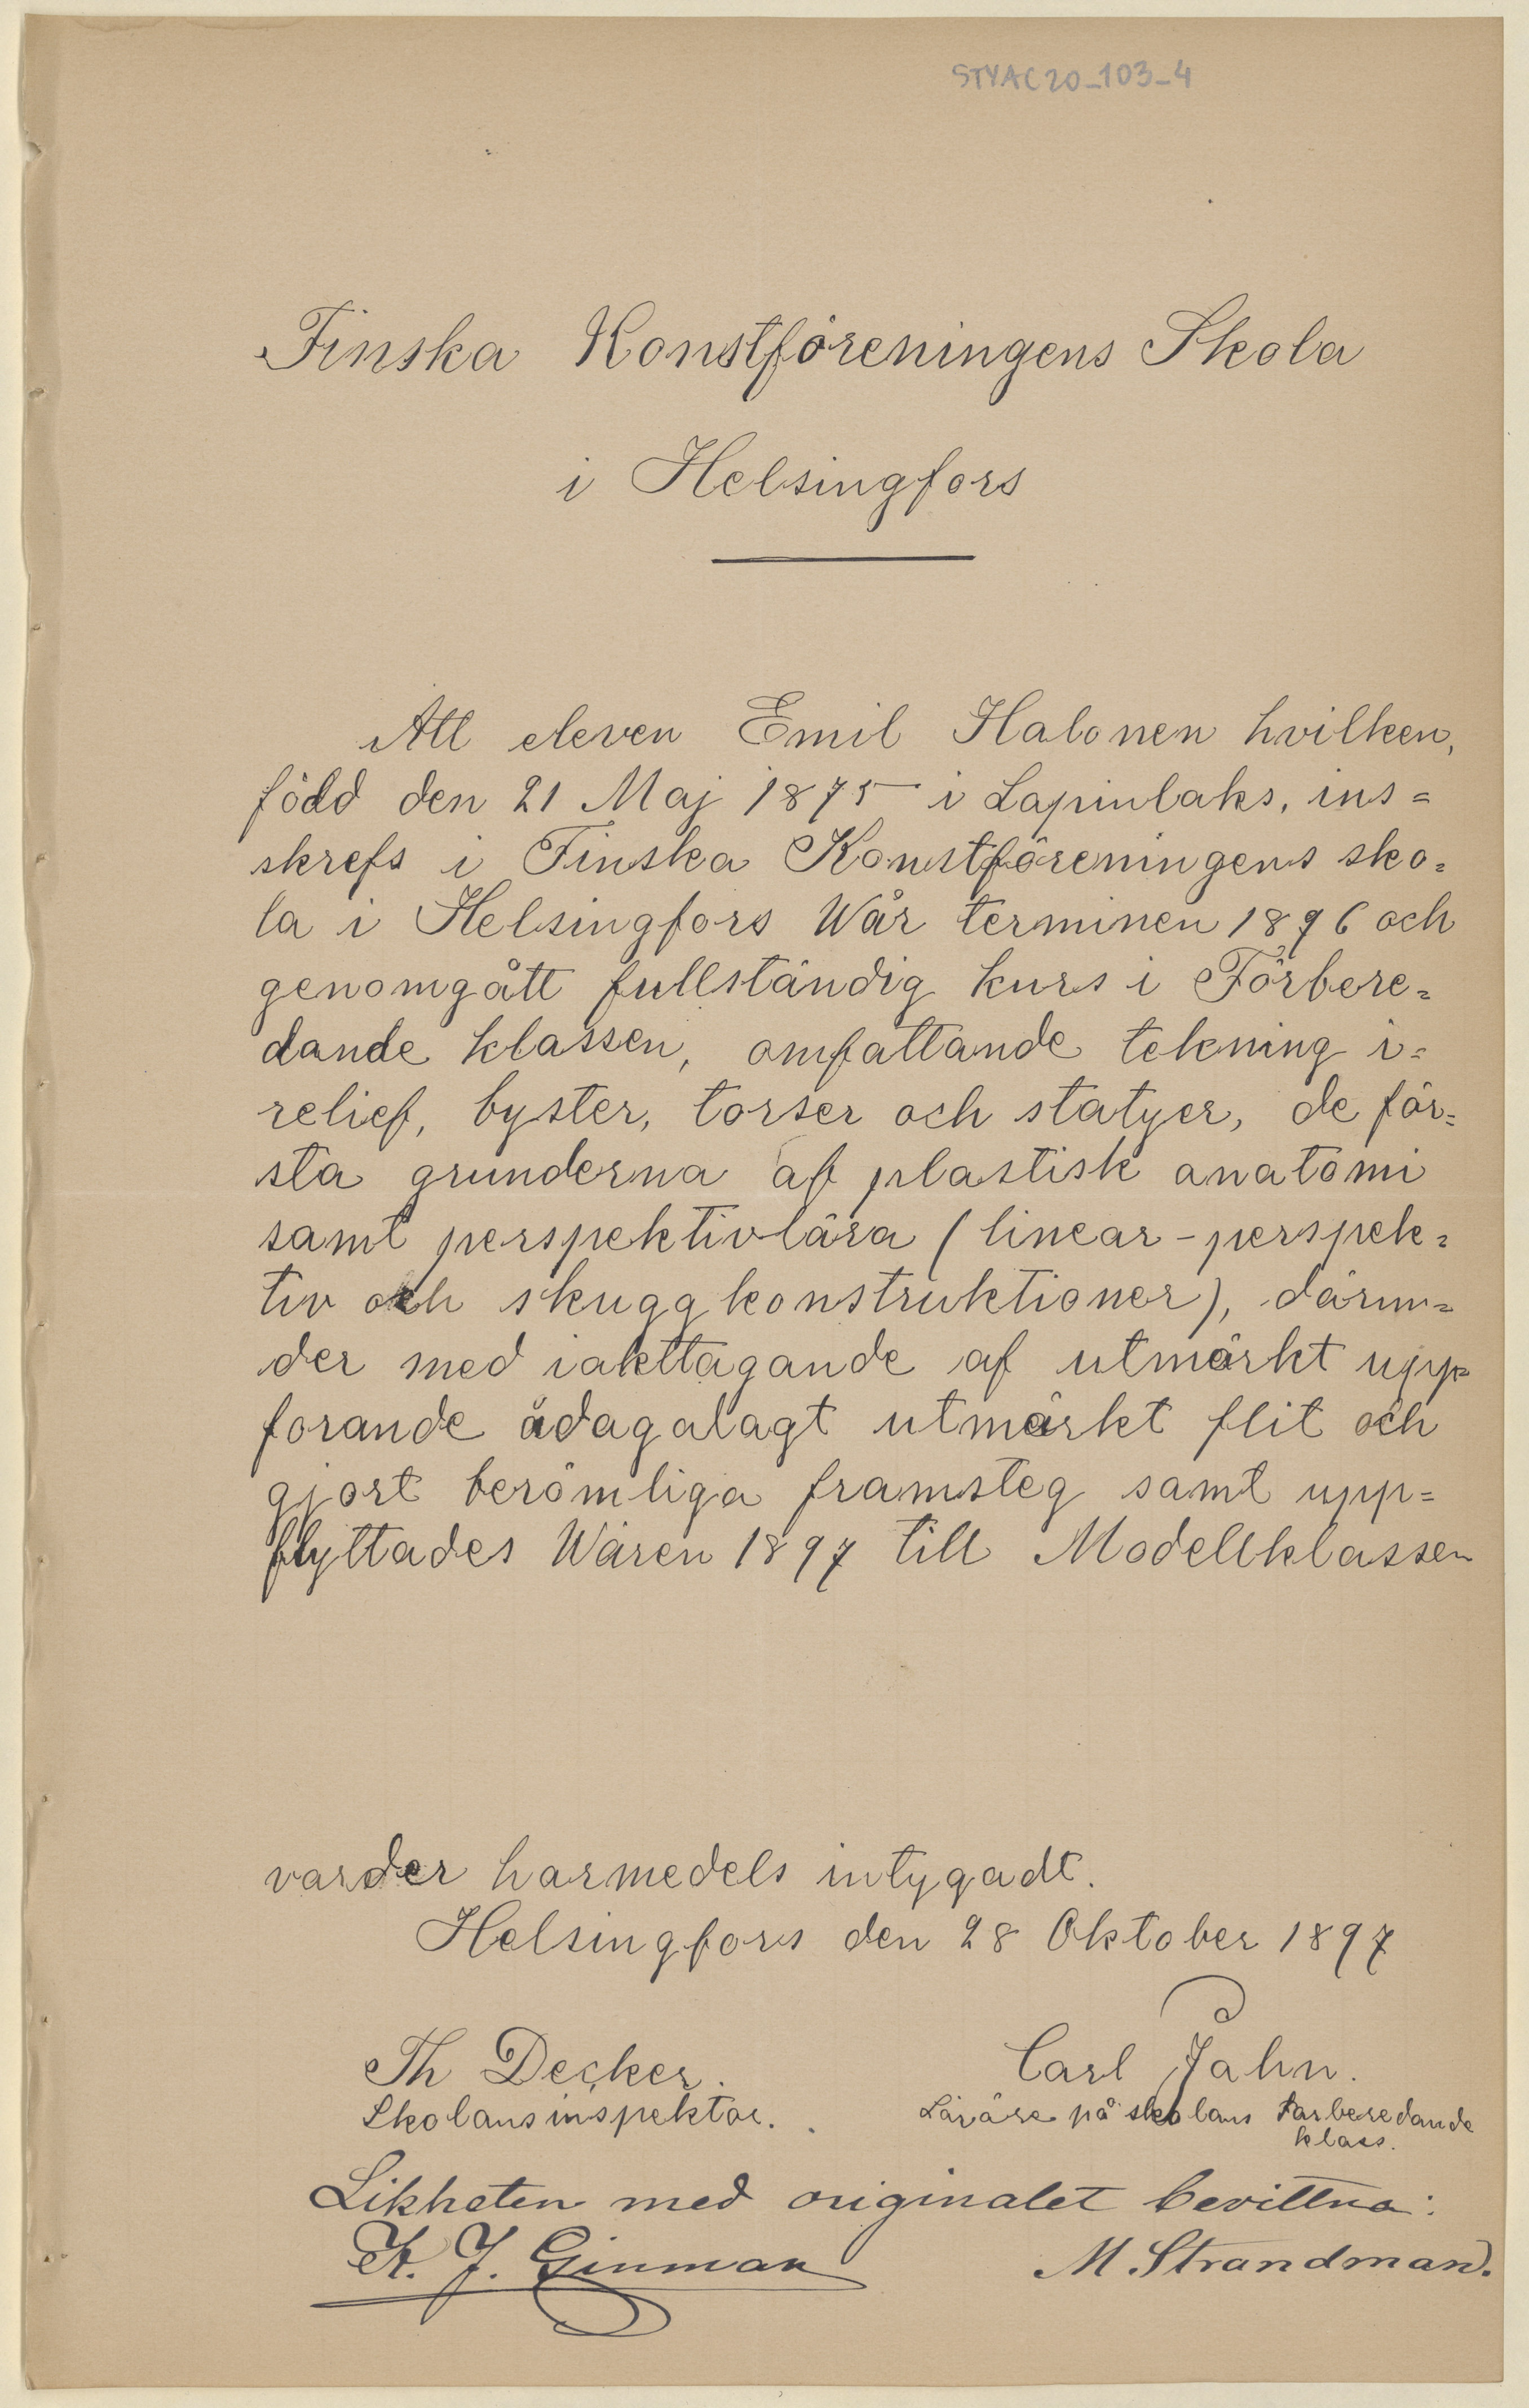 STYAC20_103_4
Finska Konstföreningens Skola
i Helsingfors
Att eleven Emil Halonen hvilken,
född den 21 Maj 1875 i Lapinlaks, ins=
skrefs i Finska Konstföreningens sko=
la i Helsingfors Wår terminen 1896 och
genomgått fullständig kurs i Förbere=
dande klassen, omfattande tekning i=
relief, byster, torser och statyer, de för=
sta grunderna af plastisk anatomi
samt perspektivlära (linear-perspek=
tiv och skuggkonstruktioner), därun=
der med iakttagande af utmärkt upp=
forande ådagalagt utmärkt flit och
gjort berömliga framsteg samt upp=
flyttades Wåren 1897 till Modellklassen
varder harmedels intygadt.
Helsingfors den 28 Oktober 1897
Th Decker. Carl Jahn.
Skolans inspektor. Lärare på skolans Farberedande
klass.
Likheten med originalet bevittna:
K. J. Ginman M. Strandman.